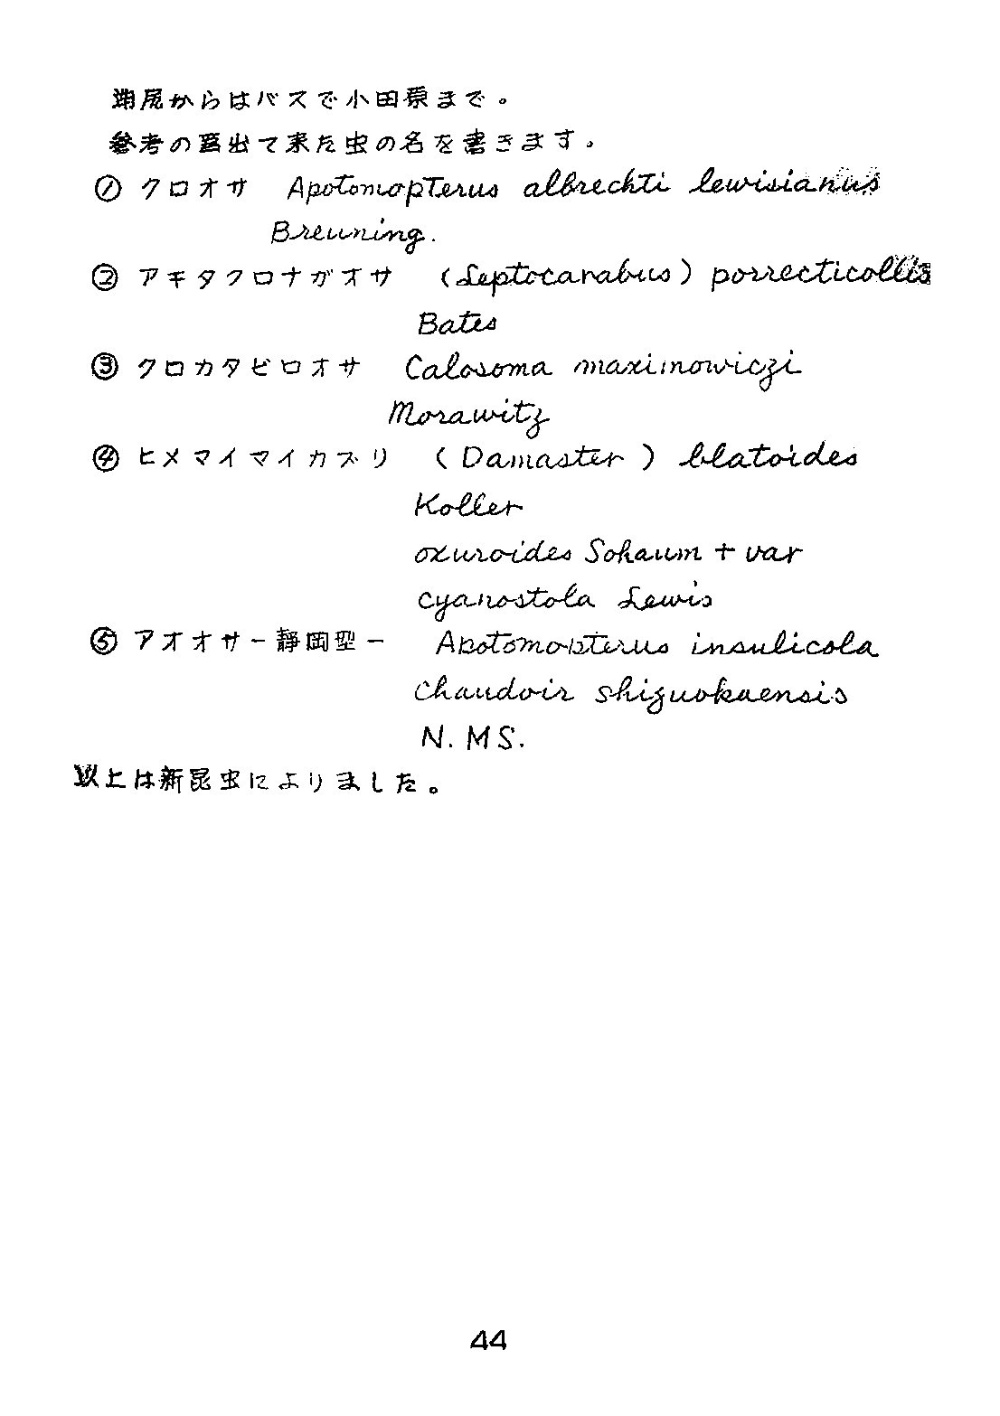 湖尻からはバスで小田原まで。
参考の為出て来た虫の名を書きます。
① クロオサ Apotomopterus albrechti lewisianus
Breuning.
② アキタクロナガオサ (Leptocarabus) porrecticollis
Bates
③ クロカタビロオサ Calosoma maximowiczi
Morawitz
④ ヒメマイマイカズリ (Damaster) blatoides
Koller
oxuroides Schaum + var
cyanostola Lewis
⑤ アオオサー静岡型ー Apotomopterus insulicola
chaudoir shizuokaensis
N. MS.
以上は新昆虫によりました。
44